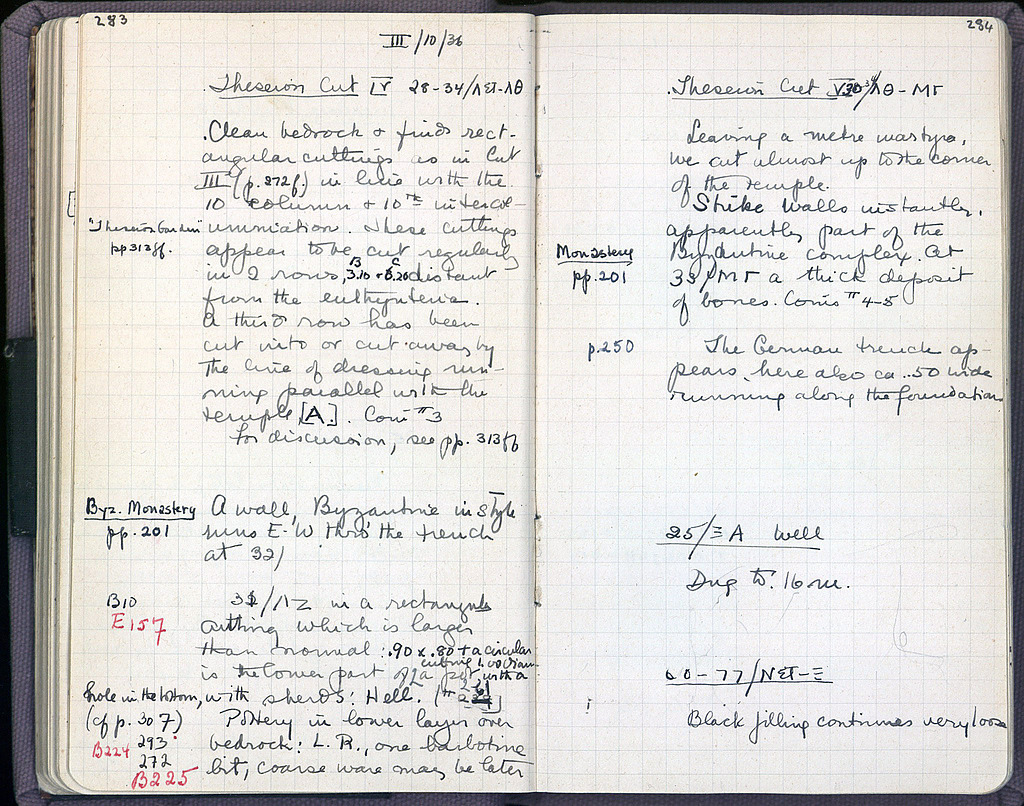 283
III/10/36
.Theseion Cut IV 28-34/ΛΣΤ-ΛΘ
.Clean bedrock & finds rect-
angular cuttings as in Cut
III (p. 272f.) in line with the
10 column & 10TH intercol-
"Theseion Garden"
pp 313ff.
umniation. These cuttings
appear to be cut regularly
in 2 rows, 3.10 + distant
B C
from the euthynteria.
A third row has been
cut into or cut away by
the line of dressing run-
ning parallel with the
temple [A]. Coin #3
for discussion, see pp. 313ff
Byz. Monastery
pp. 201
A wall, Byzantine in style
runs E-W thro' the trench
at 32/
B10
E157
/ΛΖ in a rectangular
cutting which is larger
than normal: .90 x .80 + a circular
cutting 1.00 diam
is the lower part of a pot with a
hole in the bottom, with sherds: Hell.
(cf p. 307)
293
272
B224
B225
Pottery in lower layer over
bedrock: L.R., one barbotine
bit, coarse ware may be later
284
.Theseion Cut V /ΛΘ - ΜΓ
Leaving a metre martyra,
we cut almost up to the corner
of the temple.
Strike walls instantly,
apparently part of the
Monastery
pp. 201
Byzantine complex. At
33/ΜΓ a thick deposit
of bones. Coins #4-5
p. 250
The German trench ap-
pears here also ca .50 wide
running along the foundations
25/ΞΑ well
Dug to. 16 m.
-77/ΝΣΤ-Ξ
Black filling continues very loose